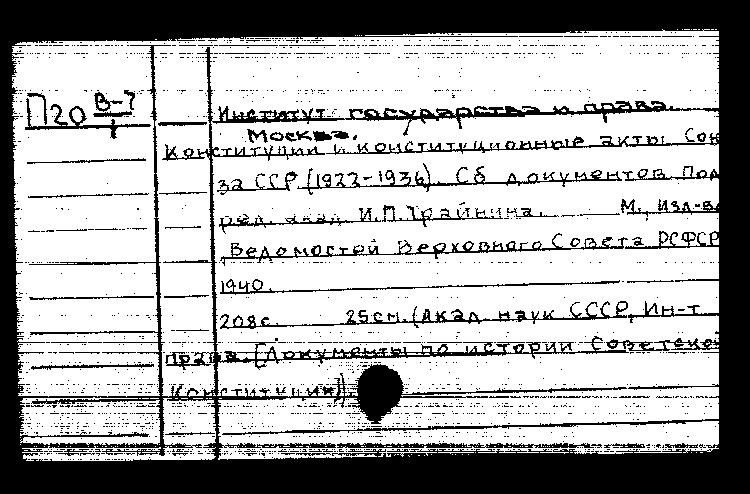 П20 В-7
1
Институт государства и права.
Москва.
Конституции и конституционные акты Сою
за ССР (1922-1936). Сб документов Под
ред. акад. И.П. Трайнина. М., Изд-во
"Ведомостей Верховного Совета РСФСР
1940.
208с. 25см. (Акад. наук СССР, Ин-т
права. [Документы по истории Советской
Конституции])